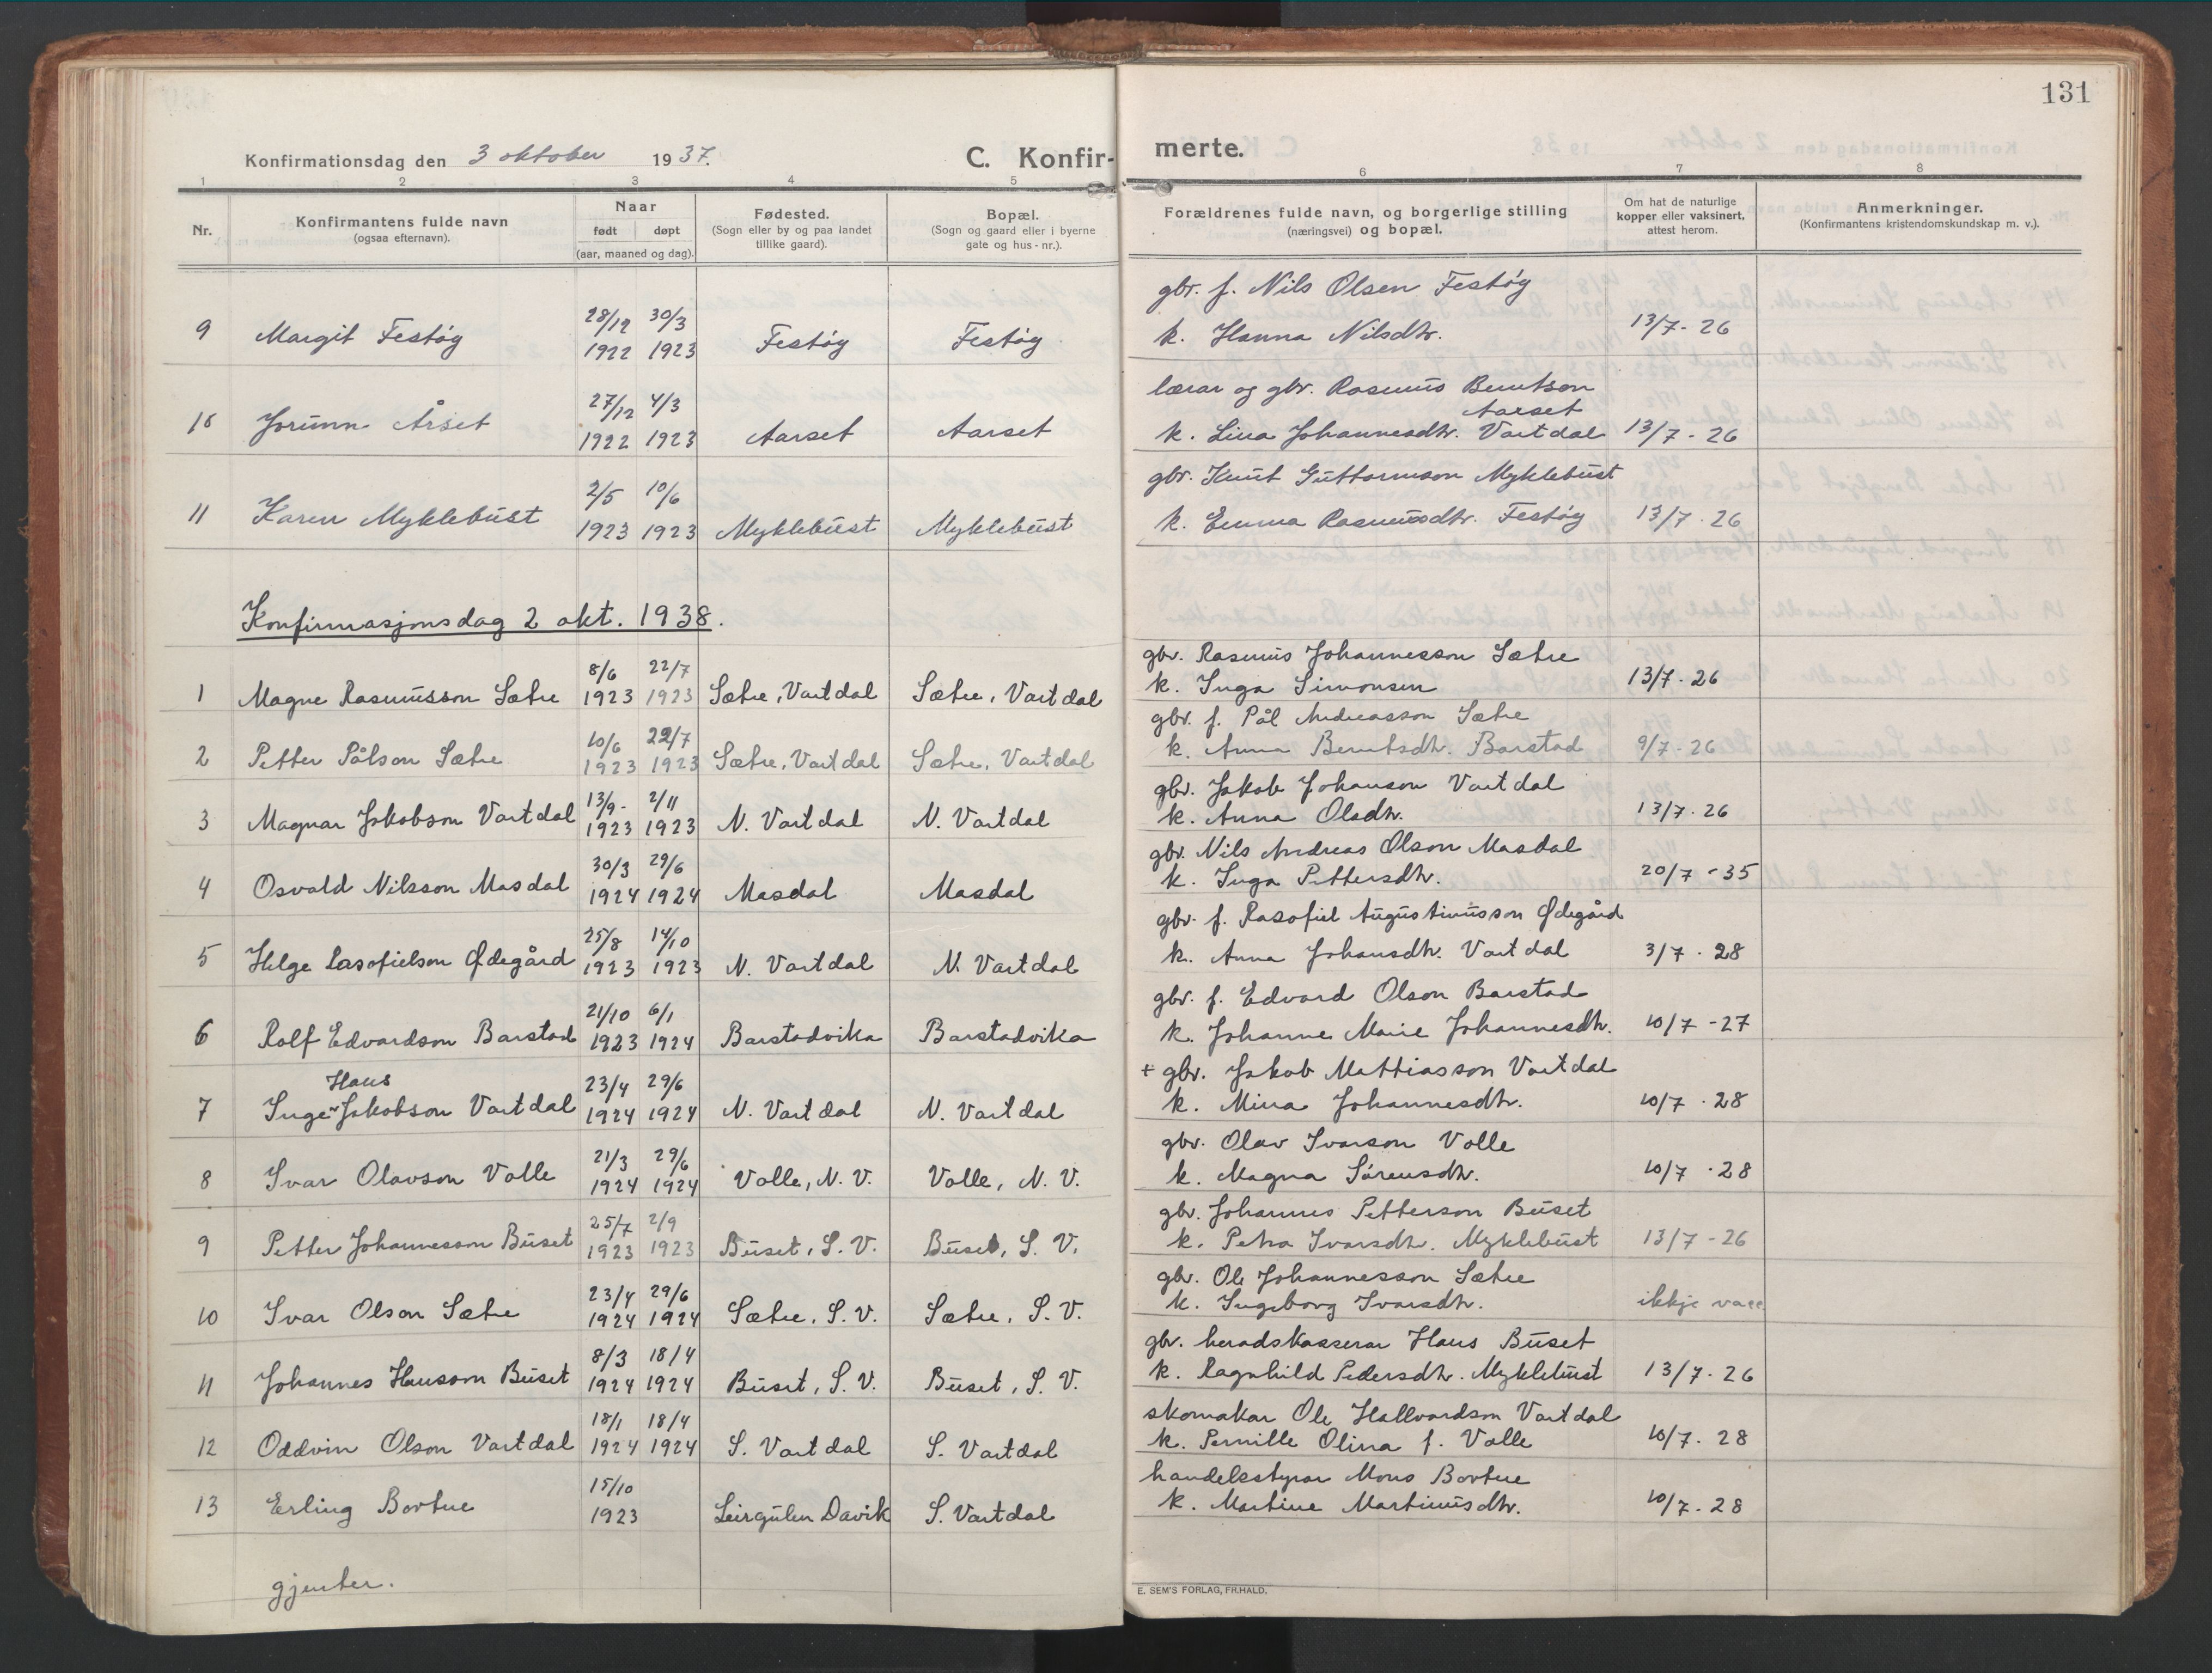 131
Konfirmationsdag den 3 oktober 1937.
C. Konfir-merte.
1 2 3 4 5 6 7 8
Nr.
Konfirmantens fulde navn
(ogsaa efternavn).
Naar
født døpt
(aar, maaned og dag).
Fødested.
(Sogn eller by og paa landet
tillike gaard).
Bopæl.
(Sogn og gaard eller i byerne
gate og hus - nr.).
Forældrenes fulde navn, og borgerlige stilling
(næringsvei) og bopæl.
Om hat de naturlige
kopper eller vaksinert,
attest herom.
Anmerkninger.
(Konfirmantens kristendomskundskap m. v.).
28/12 30/3 gbr. f. Nils Olsen Festøy
9 Margit Festøy 1922 1923 Festøy Festøy k. Hanna Nilsdtr. 13/7 - 26
27/12 4/3 lærar og gbr. Rasmus Berntson
Aarset
10 Jorunn Årset 1922 1923 Aarset Aarset k. Lina Johannesdtr. Vartdal 13/7 - 26
2/5 10/6 gbr. Knut Guttormson Myklebust
11 Karen Myklebust 1923 1923 Myklebust Myklebust k. Emma Rasmusdtr. Festøy 13/7 - 26
Konfirmasjonsdag 2 okt. 1938.
8/6 22/7 gbr. Rasmus Johannesson Sætre
1 Magne Rasmusson Sætre 1923 1923 Sætre, Vartdal Sætre, Vartdal k. Inga Simonsen 13/7 - 26
10/6 22/7 gbr. f. Pål Andreasson Sætre
2 Petter Pålson Sætre 1923 1923 Sætre, Vartdal Sætre, Vartdal k. Anna Berntsdtr. Barstad 9/7 - 26
13/9 - 2/11 gbr. Jakob Johanson Vartdal
3 Magnar Jakobson Vartdal 1923 1923 N. Vartdal N. Vartdal k. Anna Olsdtr. 13/7 - 26
30/3 29/6 gbr. Nils Andreas Olson Masdal
4 Osvald Nilsson Masdal 1924 1924 Masdal Masdal k. Inga Pettersdtr. 20/7 - 35
25/8 14/10 gbr. f. Rasofiel Augustinusson Ødegård
5 Helge Rasofielson Ødegård 1923 1923 N. Vartdal N. Vartdal k. Anna Johansdtr. Vartdal 3/7 - 28
21/10 6/1 gbr. f. Edvard Olson Barstad
6 Rolf Edvardson Barstad 1923 1924 Barstadvika Barstadvika k. Johanne Marie Johannesdtr. 10/7 - 27
Hans 23/4 29/6 + gbr. Jakob Mattiasson Vartdal
7 Inge Jakobson Vartdal 1924 1924 N. Vartdal N. Vartdal k. Mina Johannesdtr. 10/7 - 28
21/3 29/6 gbr. Olav Ivarson Valle
8 Ivar Olavson Valle 1924 1924 Valle, N. V. Valle, N. V. k. Magna Sørensdtr. 10/7 - 28
25/7 2/9 gbr. Johannes Petterson Buset
9 Petter Johannesson Buset 1923 1923 Buset, S. V. Buset, S. V. k. Petra Ivarsdtr. Myklebust 13/7 - 26
23/4 29/6 gbr. Ole Johannesson Sætre
10 Ivar Olson Sætre 1924 1924 Sætre, S. V. Sætre, S. V. k. Ingeborg Ivarsdtr. ikkje vacc
8/3 18/4 gbr. heradskasserar Hans Buset
11 Johannes Hansson Buset 1924 1924 Buset, S. V. Buset, S. V. k. Ragnhild Pedersdtr. Myklebust 13/7 - 26
18/1 18/4 skomakar Ole Hallvardson Vartdal
12 Oddvin Olson Vartdal 1924 1924 S. Vartdal S. Vartdal k. Pernille Olina f. Valle 10/7 - 28
15/10 handelsstyrar Mons Bortne
13 Erling Bortne 1923 Leirgulen Davik S. Vartdal k. Martine Martinusdtr. 10/7 - 28
gjenter.
E. SEM'S FORLAG, FR.HALD.